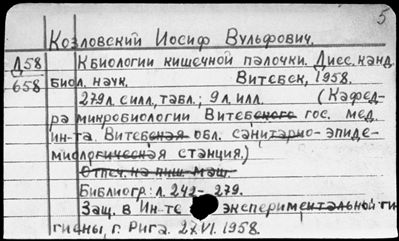 5
Козловский Иосиф Вульфович.
Д58 К биологии кишечной палочки. Дисс. канд.
658 биол. наук. Витебск, 1958.
279л. с илл., табл.; 9 л. илл. (Кафед-
ра микробиологии Витебского гос. мед.
ин-та. Витебская обл. санитарно-эпиде-
миологическая станция.)
Отпеч. на пиш. маш.
Библиогр: л. 242-279.
Защ. в Ин-те экспериментальной ги-
гиены, г. Рига. 27.VI.1958.